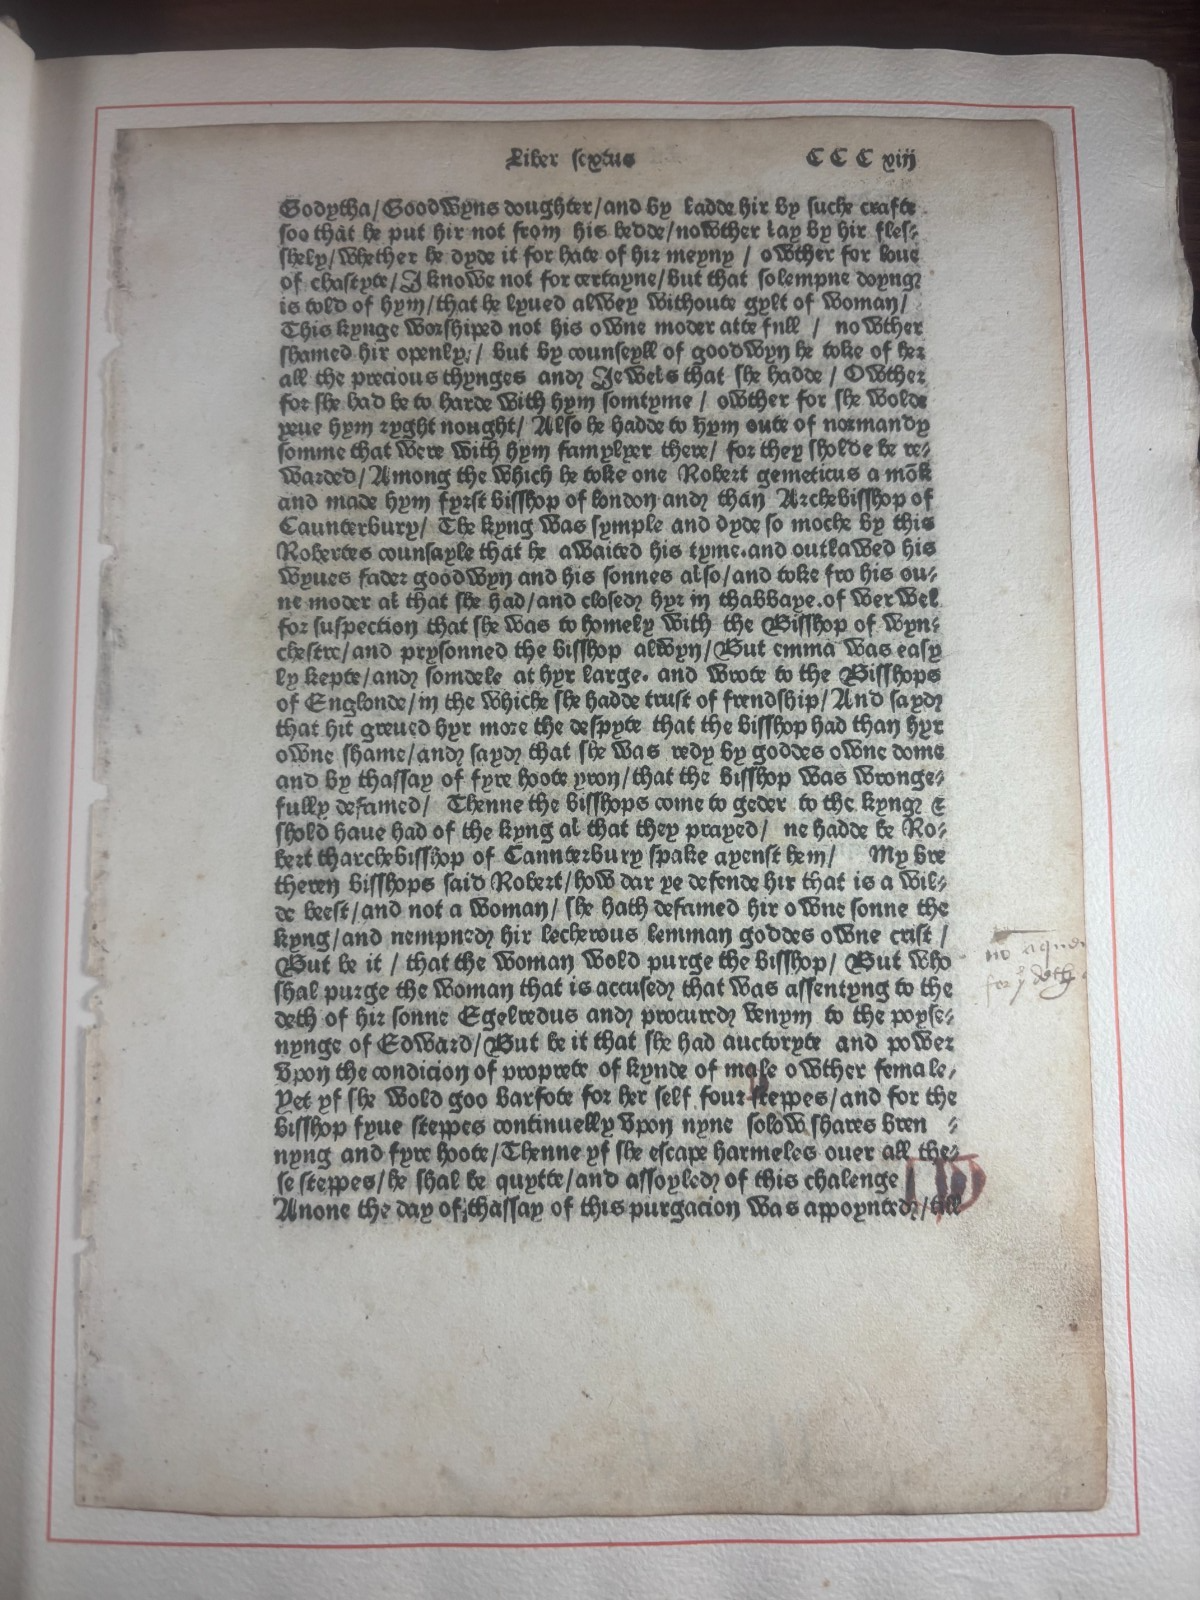 Liber sextus C C C xiij
Godytha/Goodwyns doughter/and by ladde hir by suche crafte
soo that he put hir not from his bedde/nowther lay by hir fles-
shely/whether he dyde it for hate of hir meyny / owther for loue
of chastyte/I knowe not for certayne/but that solempne doyng
is told of hym/that he lyued alwey withoute gylt of woman/
This kynge worshiped not his owne moder atte fnll / nowther
shamed hir openly;/ but by counseyll of goodwyn he toke of her
all the precious thynges and Jewels that she hadde / Owther
for she had be to harde with hym somtyme / owther for she wolde
yeue hym ryght nought/ Also he hadde to hym oute of normandy
somme that were with hym famylyer there/ for they sholde be re-
warded/Among the which he toke one Robert gemeticus a mōk
and made hym fyrst bisshop of london and than Archebisshop of
Caunterbury/ The kyng was symple and dyde so moche by this
Robertes counsayle that he awaited his tyme.and outlawed his
wyues fader goodwyn and his sonnes also/and toke fro his ou-
ne moder al that she had/and closed hyr in thabbaye.of werwel
for suspection that she was to homely with the Bisshop of wyn-
chestre/and prysonned the bisshop alwyn/But emma was easy
ly kepte/and somdele at hyr large. and wrote to the Bisshops
of Englonde/in the whiche she hadde trust of frendship/And sayd
that hit greued hyr more the despyte that the bisshop had than hyr
owne shame/and sayd that she was redy by goddes owne dome
and by thassay of fyre hoote yron/that the bisshop was wronge-
fully defamed/ Thenne the bisshops come to geder to the kyng &
shold haue had of the kyng al that they prayed/ ne hadde be Ro-
bert tharchebisshop of Cannterbury spake ayenst hem/ My bre
theren bisshops said Robert/how dar ye defende hir that is a wil-
de beest/and not a woman/ she hath defamed hir owne sonne the
kyng/and nempned hir lecherous lemman goddes owne crist /
But be it / that the woman wold purge the bisshop/ But who
shal purge the woman that is accused that was assentyng to the
deth of hir sonne Egelredus and procured venym to the poyse-
nynge of Edward/But be it that she had auctoryte and power
vpon the condicion of proprete of kynde of male owther female,
Yet yf she wold goo barfote for her self four steppes/and for the
bisshop fyue steppes continuelly vpon nyne solow shares bren -
nyng and fyre hoote/Thenne yf she escape harmeles ouer all the-
se steppes/he shal be quytte/and assoyled of this chalenge
Anone the day of thassay of this purgacion was appoynted/till
no
for